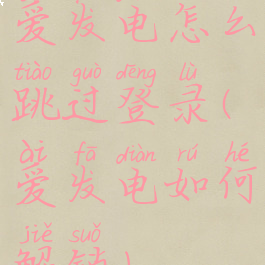 爱发电怎么
tiào guò dēng lù
跳过登录(
ài fā diàn rú hé
爱发电如何
jiě suǒ
解锁)